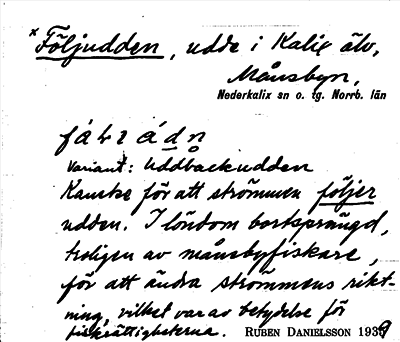 x Följudden, udde i Kalix älv,
Månsbyn,
Nederkalix sn o. tg. Norrb. län
Variant: Uddbackudden
Kanske för att strömmen följer
udden. I löndom bortsprängd,
troligen av månsbyfiskare,
för att ändra strömmens rikt-
ning, vilket var av betydelse för
fiskrättigheterna. RUBEN DANIELSSON 1939